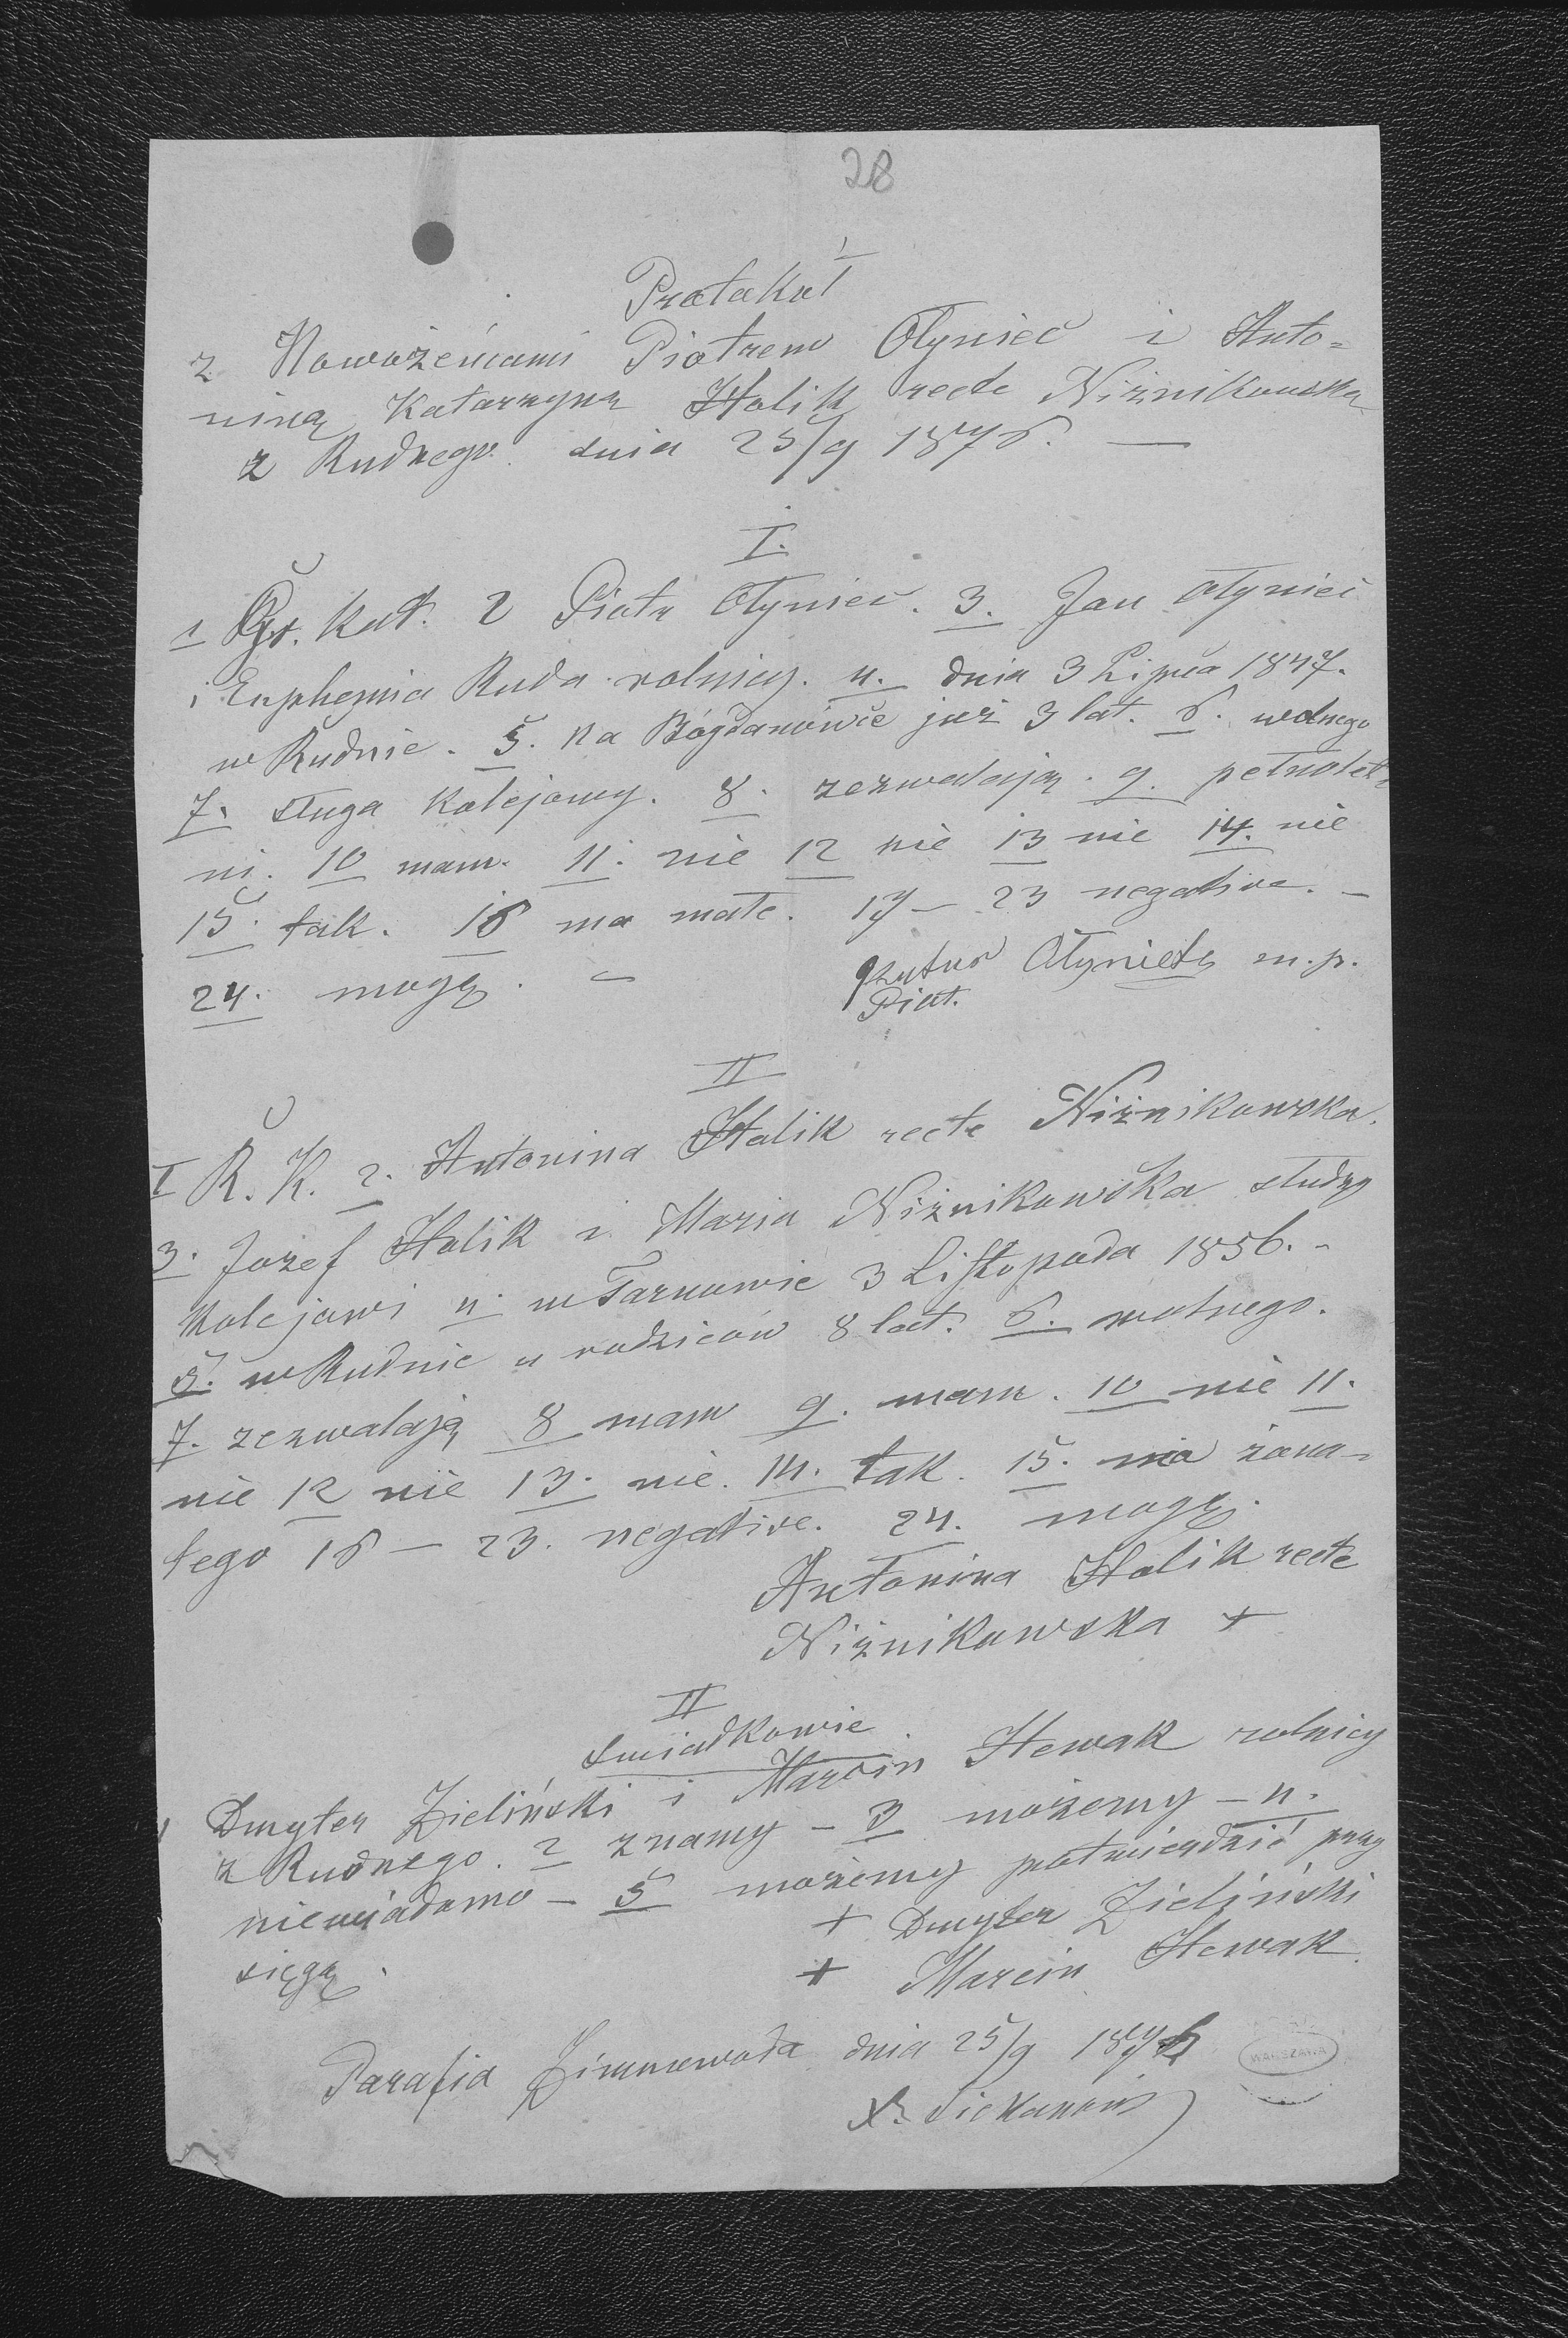 28
Protokuł
z Nowożeńcami Piotrem Ołyniec i Anto=
niną Katarzyną Halik recte Niżnikowską
z Rudnego dnia 25/9 1876. —
I.
1 Gr. Kat. 2 Piotr Ołyniec. 3. Jan Ołyniec
i Euphemia Ruda rolnicy. 4. dnia 3 Lipca 1847.
w Rudnie. 5. na Bogdanówce już 3 lat. 6. wolnego
7. sługa kolejowy. 8. zezwalają. 9. pełnolet=
ni. 10 mam. 11. nie 12 nie 13 nie 14. nie
15. tak. 16 ma małe. 17 — 23 negative. —
24. mogę. —
Ołyniec m. p.
Piot.
II
I R. K. 2. Antonina Halik recte Niżnikowska.
3. Jozef Halik i Maria Niżnikowska słudzy
kolejowi 4. w Tarnowie 3 Listopada 1856. -
5. w Rudnie u rodziców 8 lat. 6. wolnego.
7. zezwalają 8 mam 9. mam. 10 nie 11.
nie 12 nie 13. nie. 14. tak. 15. nie żona-
tego 16 — 23. negative. 24. mogę.
Antonina Halik recte
Niżnikowska +
II
Swiadkowie
1 Dmyter Zieliński i Marcin Hewak rolnicy
z Rudnego. 2 znamy - 3 możemy - 4.
niewiadomo - 5 możemy potwierdzić przy
sięgą.
+ Dmyter Zieliński
+ Marcin Hewak
Parafia Zimnawoda dnia 25/9 1876
X.
WARSZAWA